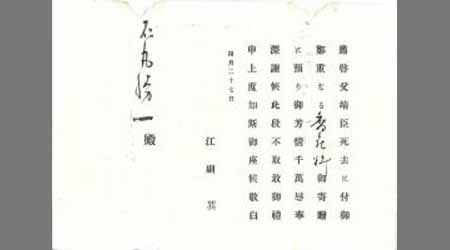 啓父靖臣死去に付御
鄭重なる香花料御寄贈
に預り御芳情千萬辱奉
深謝候此段不取敢御禮
申上度如斯御座候敬白
四月二十七日
江副 巽
石丸勝一殿